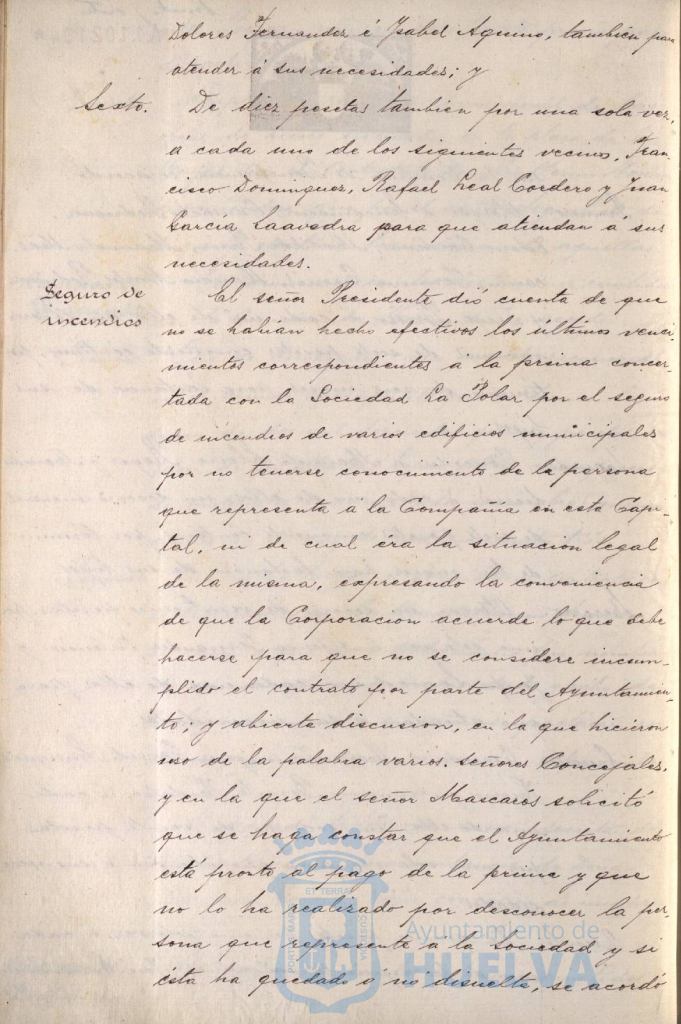 Dolores Fernandez é Ysabel Aquino, también para
atender á sus necesidades; y
Sexto. De diez pesetas también por una sola vez,
á cada uno de los siguientes vecinos, Fran
cisco Dominguez, Rafael Leal Cordero y Juan
García Saavedra para que atiendan á sus
necesidades.
Seguro de
incendios
El señor Presidente dió cuenta de que
no se habian hecho efectivos los últimos venci-
mientos correspondientes á la prima concer-
tada con la Sociedad La Polar por el seguro
de incendios de varios edificios municipales
por no tenerse conocimiento de la persona
que representa á la Compañia en esta Capi-
tal, ni de cual éra la situacion legal
de la misma, expresando la conveniencia
de que la Corporacion acuerde lo que debe
hacerse para que no se considere incum-
plido el contrato por parte del Ayuntamien-
to; y abierta discusion, en la que hicieron
uso de la palabra varios señores Concejales,
y en la que el señor Mascarós solicitó
que se haga constar que el Ayuntamiento
está pronto al pago de la prima y que
no lo ha realizado por desconocer la per-
sona que represente á la Sociedad y si
ésta ha quedado ó nó disuelta, se acordó
Ayuntamiento de
HUELVA